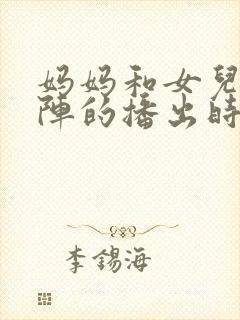 妈妈和女兒
陣的播出時
李錫海